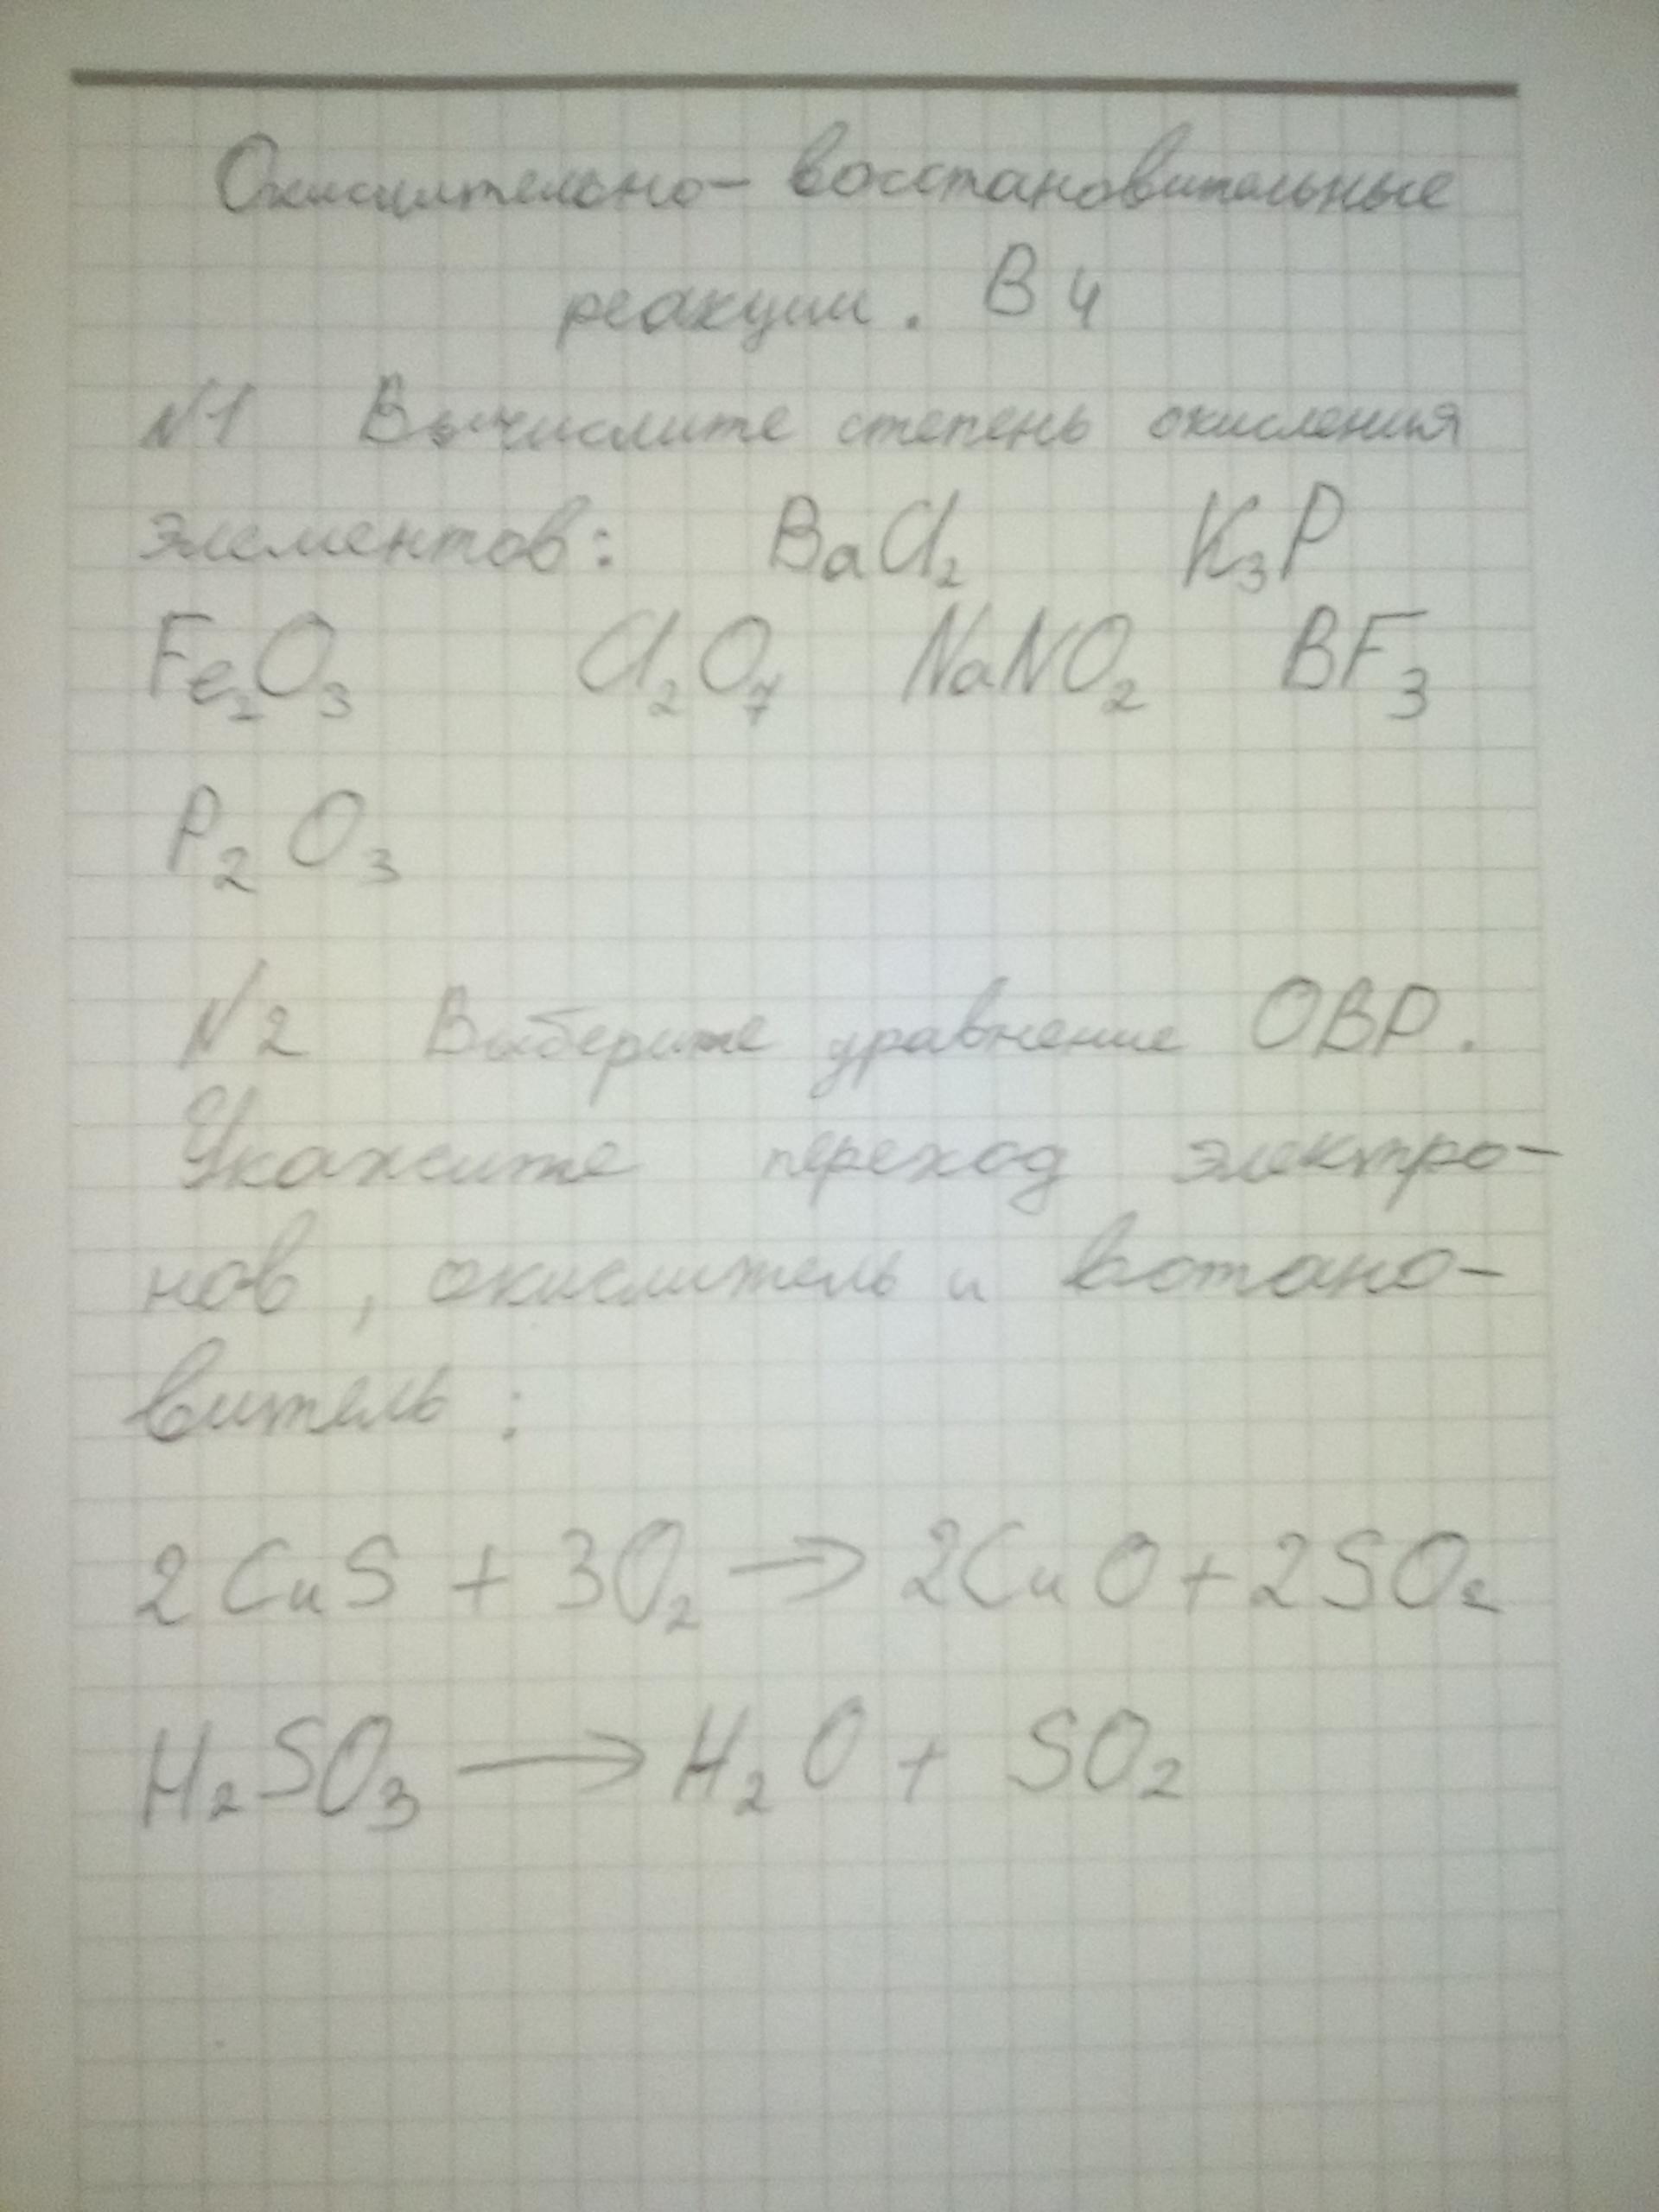 Окислительно-восстановительные
реакции. В 4
№1 Вычислите степень окисления
элементов: BaCl₂ K₃P
Fe₂O₃ Cl₂O₇ NaNO₂ BF₃
P₂O₃
№2 Выберите уравнение ОВР.
Укажите переход электро-
нов, окислитель и вотано-
витель:
2CuS + 3O₂ → 2CuO + 2SO₂
H₂SO₃ → H₂O + SO₂